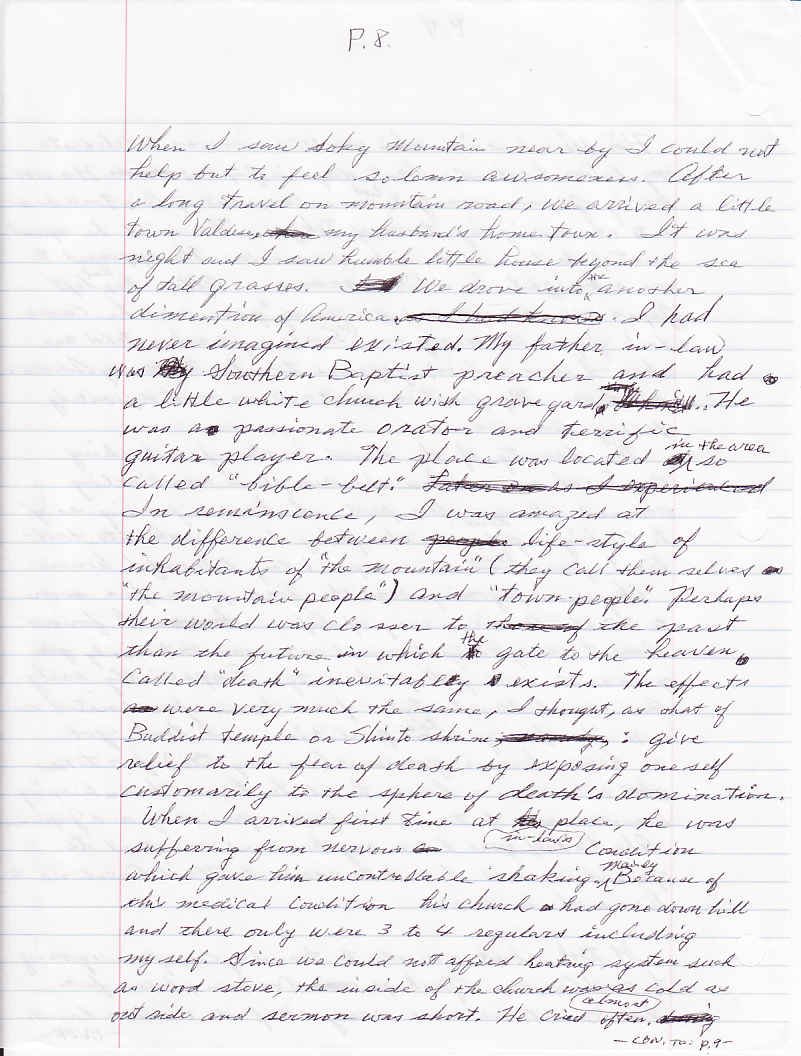 P. 8.
When I saw Soky Mountain near by I could not
help but to feel solemn awsomeness. After
a long travel on mountain road, we arrived a little
town Valdese, my husband's home town. It was
night and I saw humble little house beyond the sea
of tall grasses. We drove into the another
dimention of America. I had
never imagined existed. My father in-law
was Southern Baptist preacher and had
a little white church with graveyard. He
was a passionate orator and terrific
guitar player. The place was located in the area so
called "bible-belt."
In reminscence, I was amazed at
the difference between life-style of
inhabitants of "the mountain" (they call them selves
"the mountain people") and "town-people". Perhaps
their world was closser to the past
than the future in which the gate to the heaven
called "death" inevitably exists. The effects
were very much the same, I thought, as that of
Buddist temple or Shinto shrine : give
relief to the fear of death by exposing oneself
customarily to the sphere of death's domination.
When I arrived first time at in-law's place, he was
suffering from nervous condition
which gave him uncontrolable shaking. Mainly Because of
this medical condition his church had gone down hill
and there only were 3 to 4 regulars including
my self. Since we could not afford heating system such
as wood stove, the inside of the church was as cold as
out side and sermon was short. He cried almost often.
— CON. TO: P.9 —